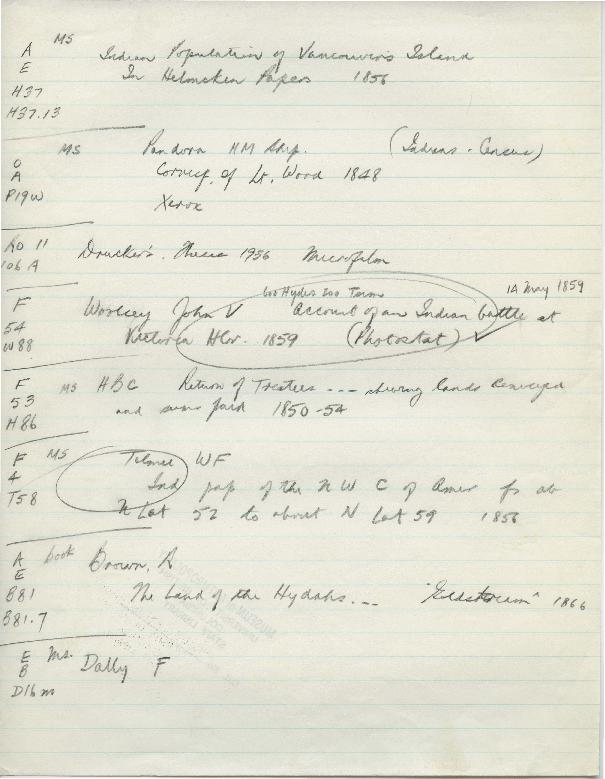 A MS Indian Population of Vancouver's Island
E In Helmcken Papers 1856
H37
H37.13
MS Pandora HM Ship. (Indians - Census)
O Corresp. of Lt. Wood 1848
A
P19w Xerox
Ro 11 Drucker's. Thesis 1956 Microfilm
106 A
600 Hydes 200 Tsim 14 May 1859
F Woolsey John V Account of an Indian battle at
54 Victoria Hbr. 1859 (Photostat) ✓
W88
F MS HBC Return of Treaties --- showing lands conveyed
53 and sums paid 1850-54
H86
F MS Tolmie WF
4 Ind pop of the N W C of Amer fr ab
T58 N Lat 52 to about N Lat 59 1856
A book Brown, A
E
B81 The Land of the Hydahs. -- "Eldstream" 1866
B81.7
E Ms. Dally F
B
D16m